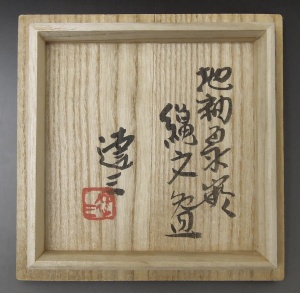 地釉象嵌
縄文
達三